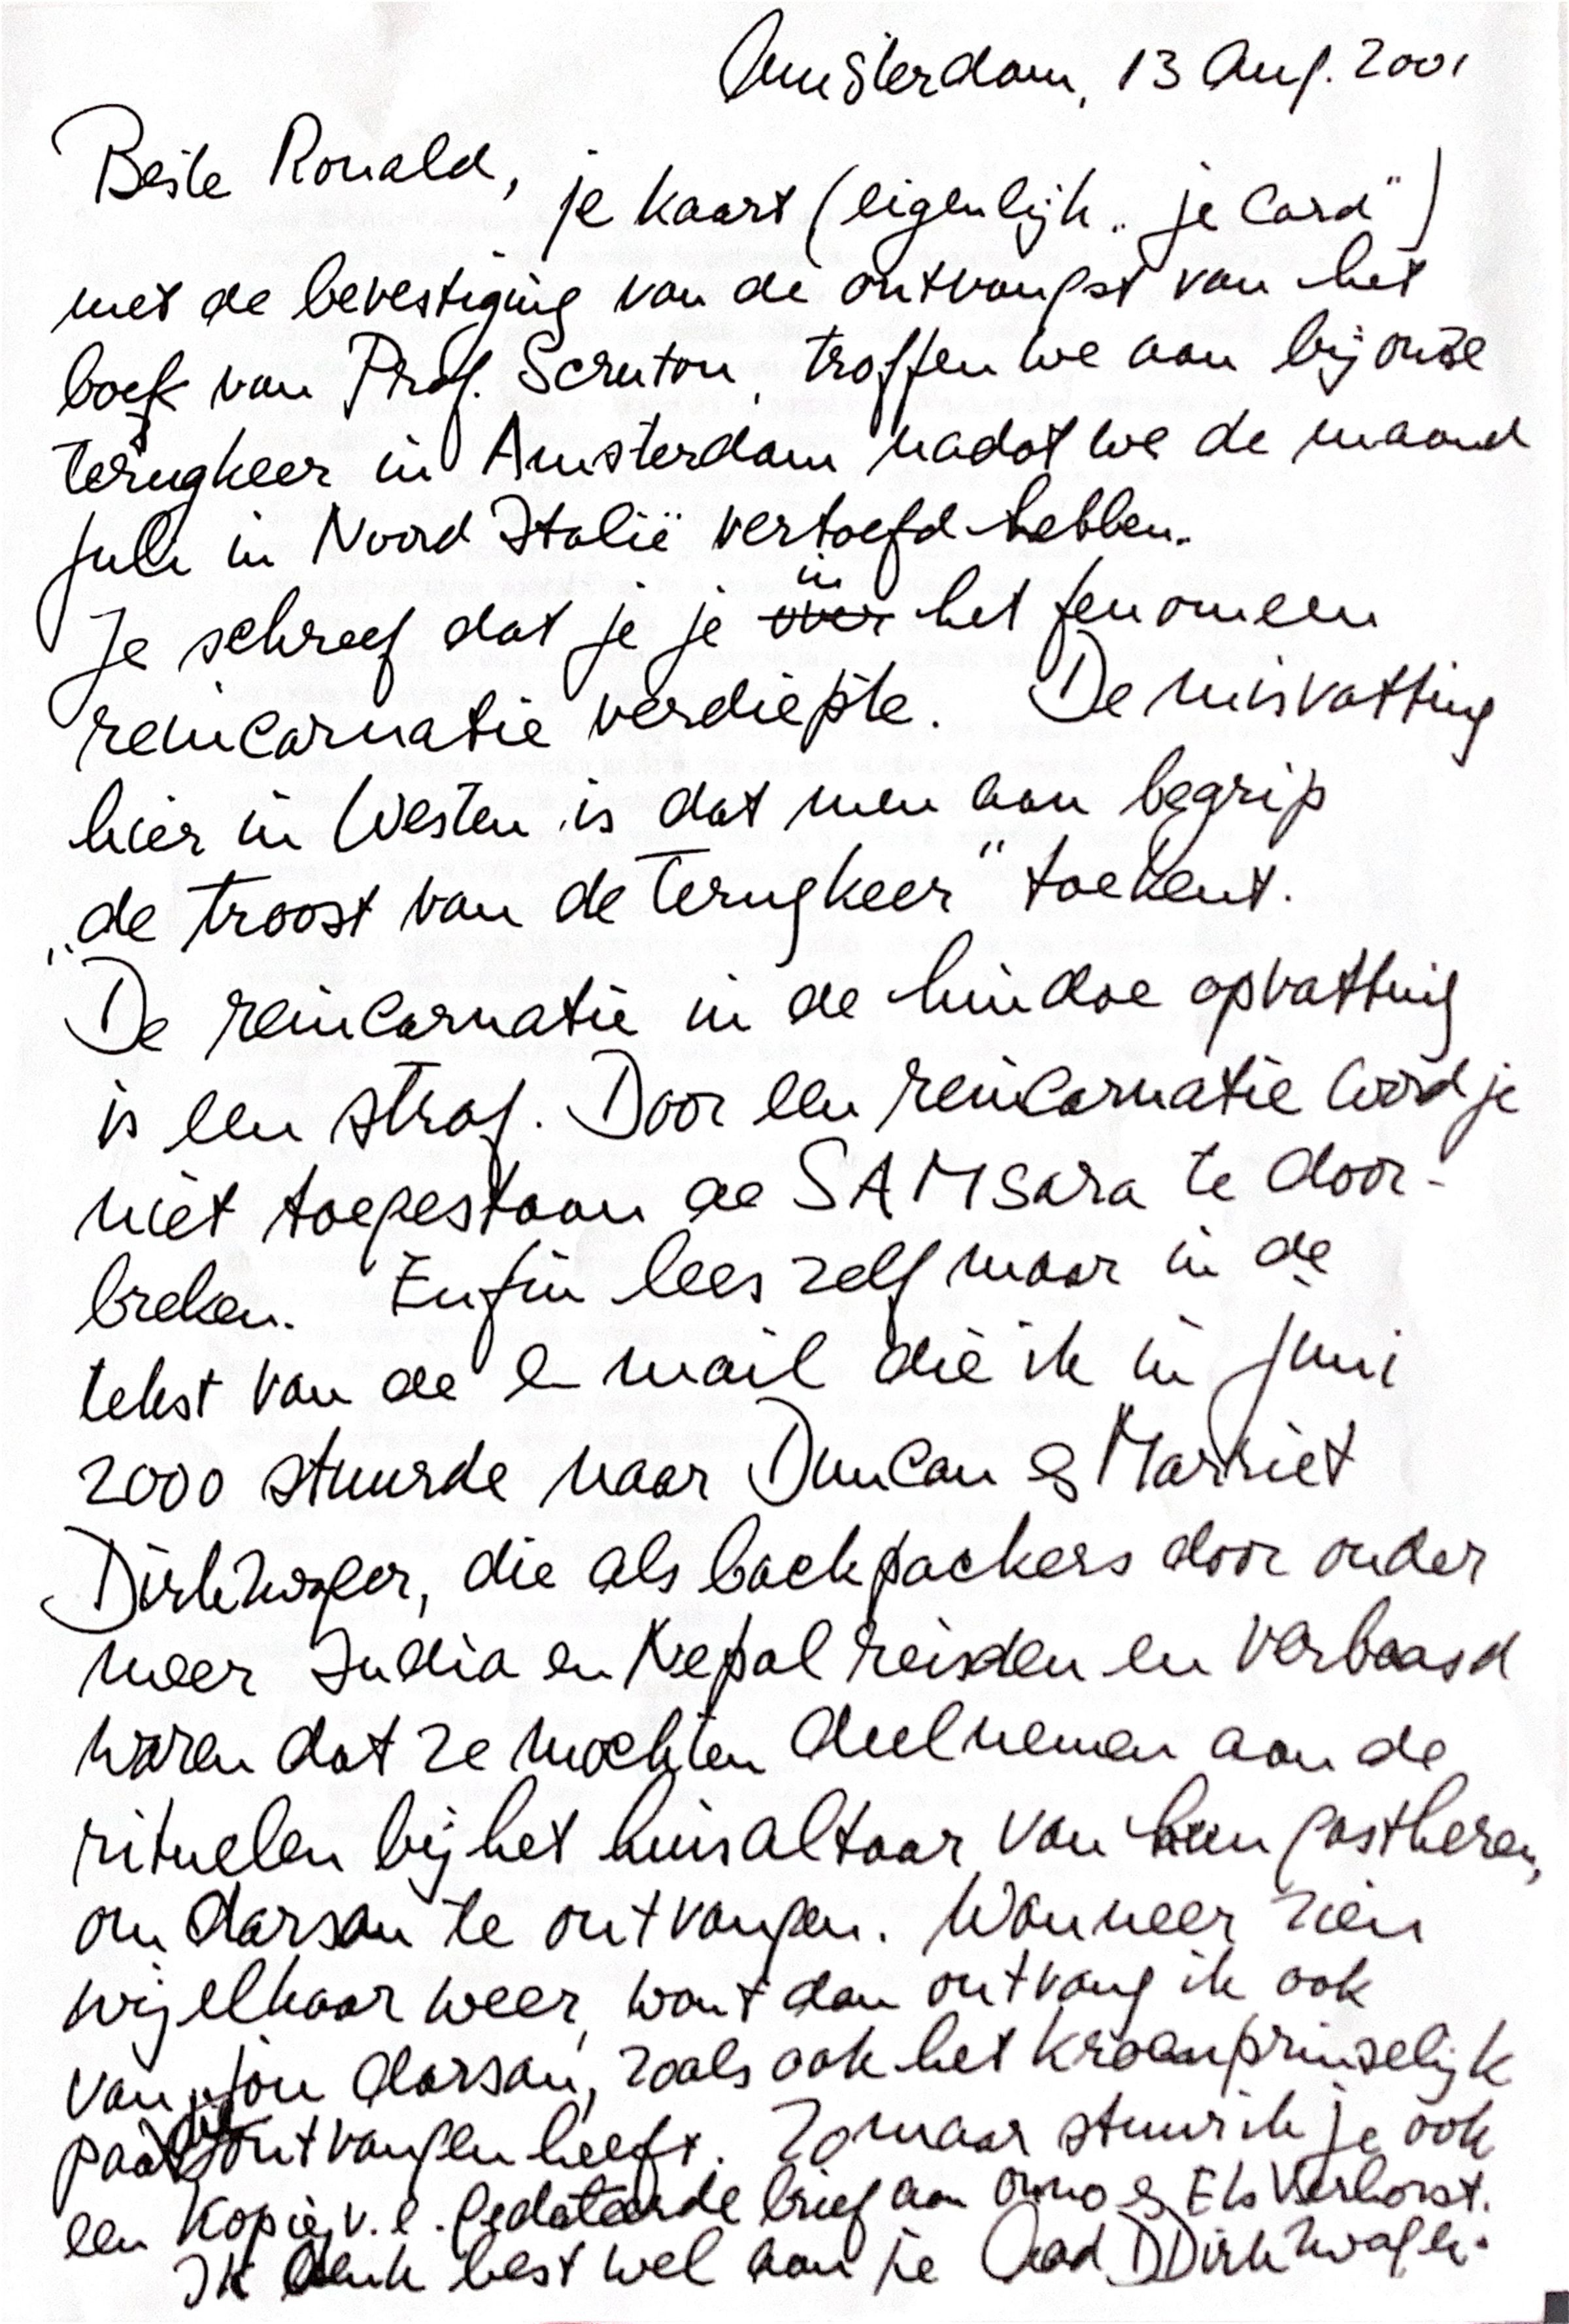 Amsterdam, 13 Aug. 2001
Beste Ronald,
je kaart (eigenlijk „je card”)
met de bevestiging van de ontvangst van het
boek van Prof. Scruton, troffen we aan bij onze
terugkeer in Amsterdam nadat we de maand
juli in Noord Italië vertoefd hebben.
in
Je schreef dat je je over het fenomeen
reincarnatie verdiepte. De misvatting
hier in Westen is dat men aan begrip
„de troost van de terugkeer” toekent.
De reincarnatie in de hindoe opvatting
is een straf. Door een reincarnatie word je
niet toegestaan de SAMsara te door-
breken. Enfin lees zelf maar in de
tekst van de e-mail die ik in juni
2000 stuurde naar Duncan & Marriët
Dirkzwager, die als backpackers door onder
meer India en Nepal reisden en verbaasd
waren dat ze mochten deelnemen aan de
rituelen bij het huisaltaar van hun gastheren,
om darsan te ontvangen. Wanneer zien
wij elkaar weer, want dan ontvang ik ook
van jou darsan, zoals ook het kroonprinselijk
paar dit ontvangen heeft. Zomaar stuur ik je ook
een kopie v. e. gedateerde brief aan Onno & Els Verhorst.
Ik denk best wel aan je Aad D Dirkzwager.